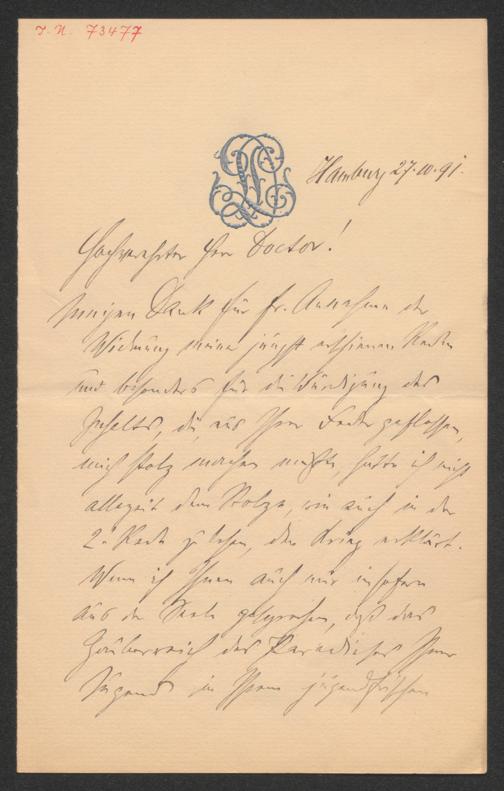 J. N. 73477
Hamburg 27.10.91.
Hochverehrter Herr Doctor!
Innigen Dank für fr. Annahme der
Widmung meiner jüngst erschienenen
und besonders für die Würdigung des
Inhalts, die, aus Ihrer Feder geflossen,
mich stolz machen müßte, hätte ich nicht
allezeit dem Stolze, wie auch in der
2. zu lesen, den Krieg erklärt.
Wenn ich Ihnen auch nur insofern
aus der Seele gesprochen, daß das
Zauberreich des Paradieses Ihrer
Jugend in Ihrem jugendfrischen